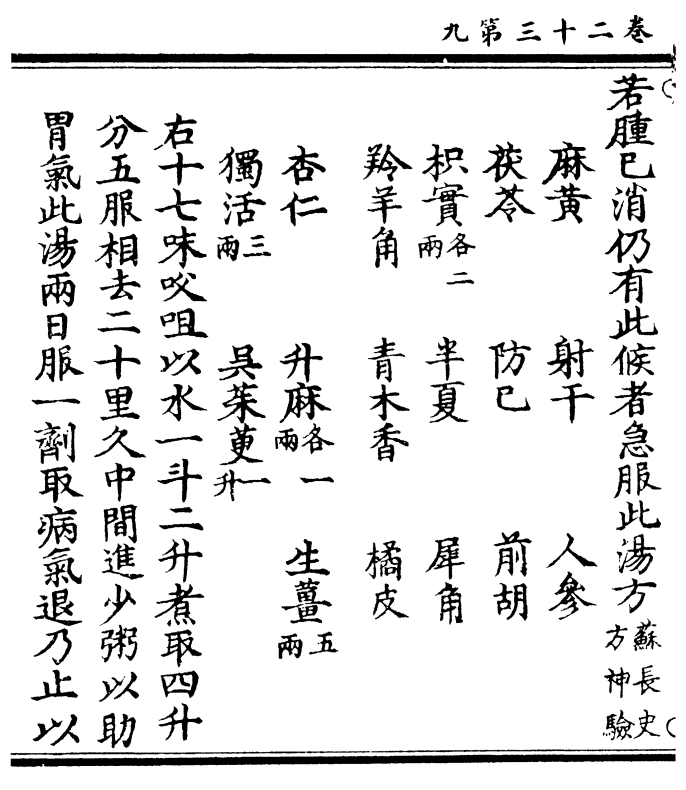 卷二十三第九
若腫已消仍有此候者急服此湯方蘇長史方神驗
麻黃 射干 人參
茯苓 防已 前胡
枳實各二兩 半夏 犀角
羚羊角 青木香 橘皮
杏仁 升麻各一兩 生薑五兩
獨活三兩 吳茱萸一升
右十七味㕮咀以水一斗二升煮取四升
分五服相去二十里久中間進少粥以助
胃氣此湯兩日服一劑取病氣退乃止以